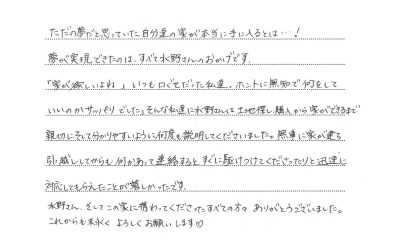 ただの夢だと思っていた自分達の家が本当に手に入るとは…!
夢が実現できたのは、すべて水野さんのおかげです。
「家が欲しいよね」いつも口ぐせだった私達、ホントに無知で何をして
いいのかサッパリでした。そんな私達に水野さんは土地探し、購入から家ができるまで
親切にそして分かりやすいように何度も説明してくださいました。無事に家が建ち
引越ししてからも何かあって連絡すると、すぐに駆けつけてくださったりと迅速に
対応してもらえたことが嬉しかったです。
水野さん、そしてこの家に携わってくださったすべての方々 ありがとうございました。
これからも末永く よろしくお願いします♡